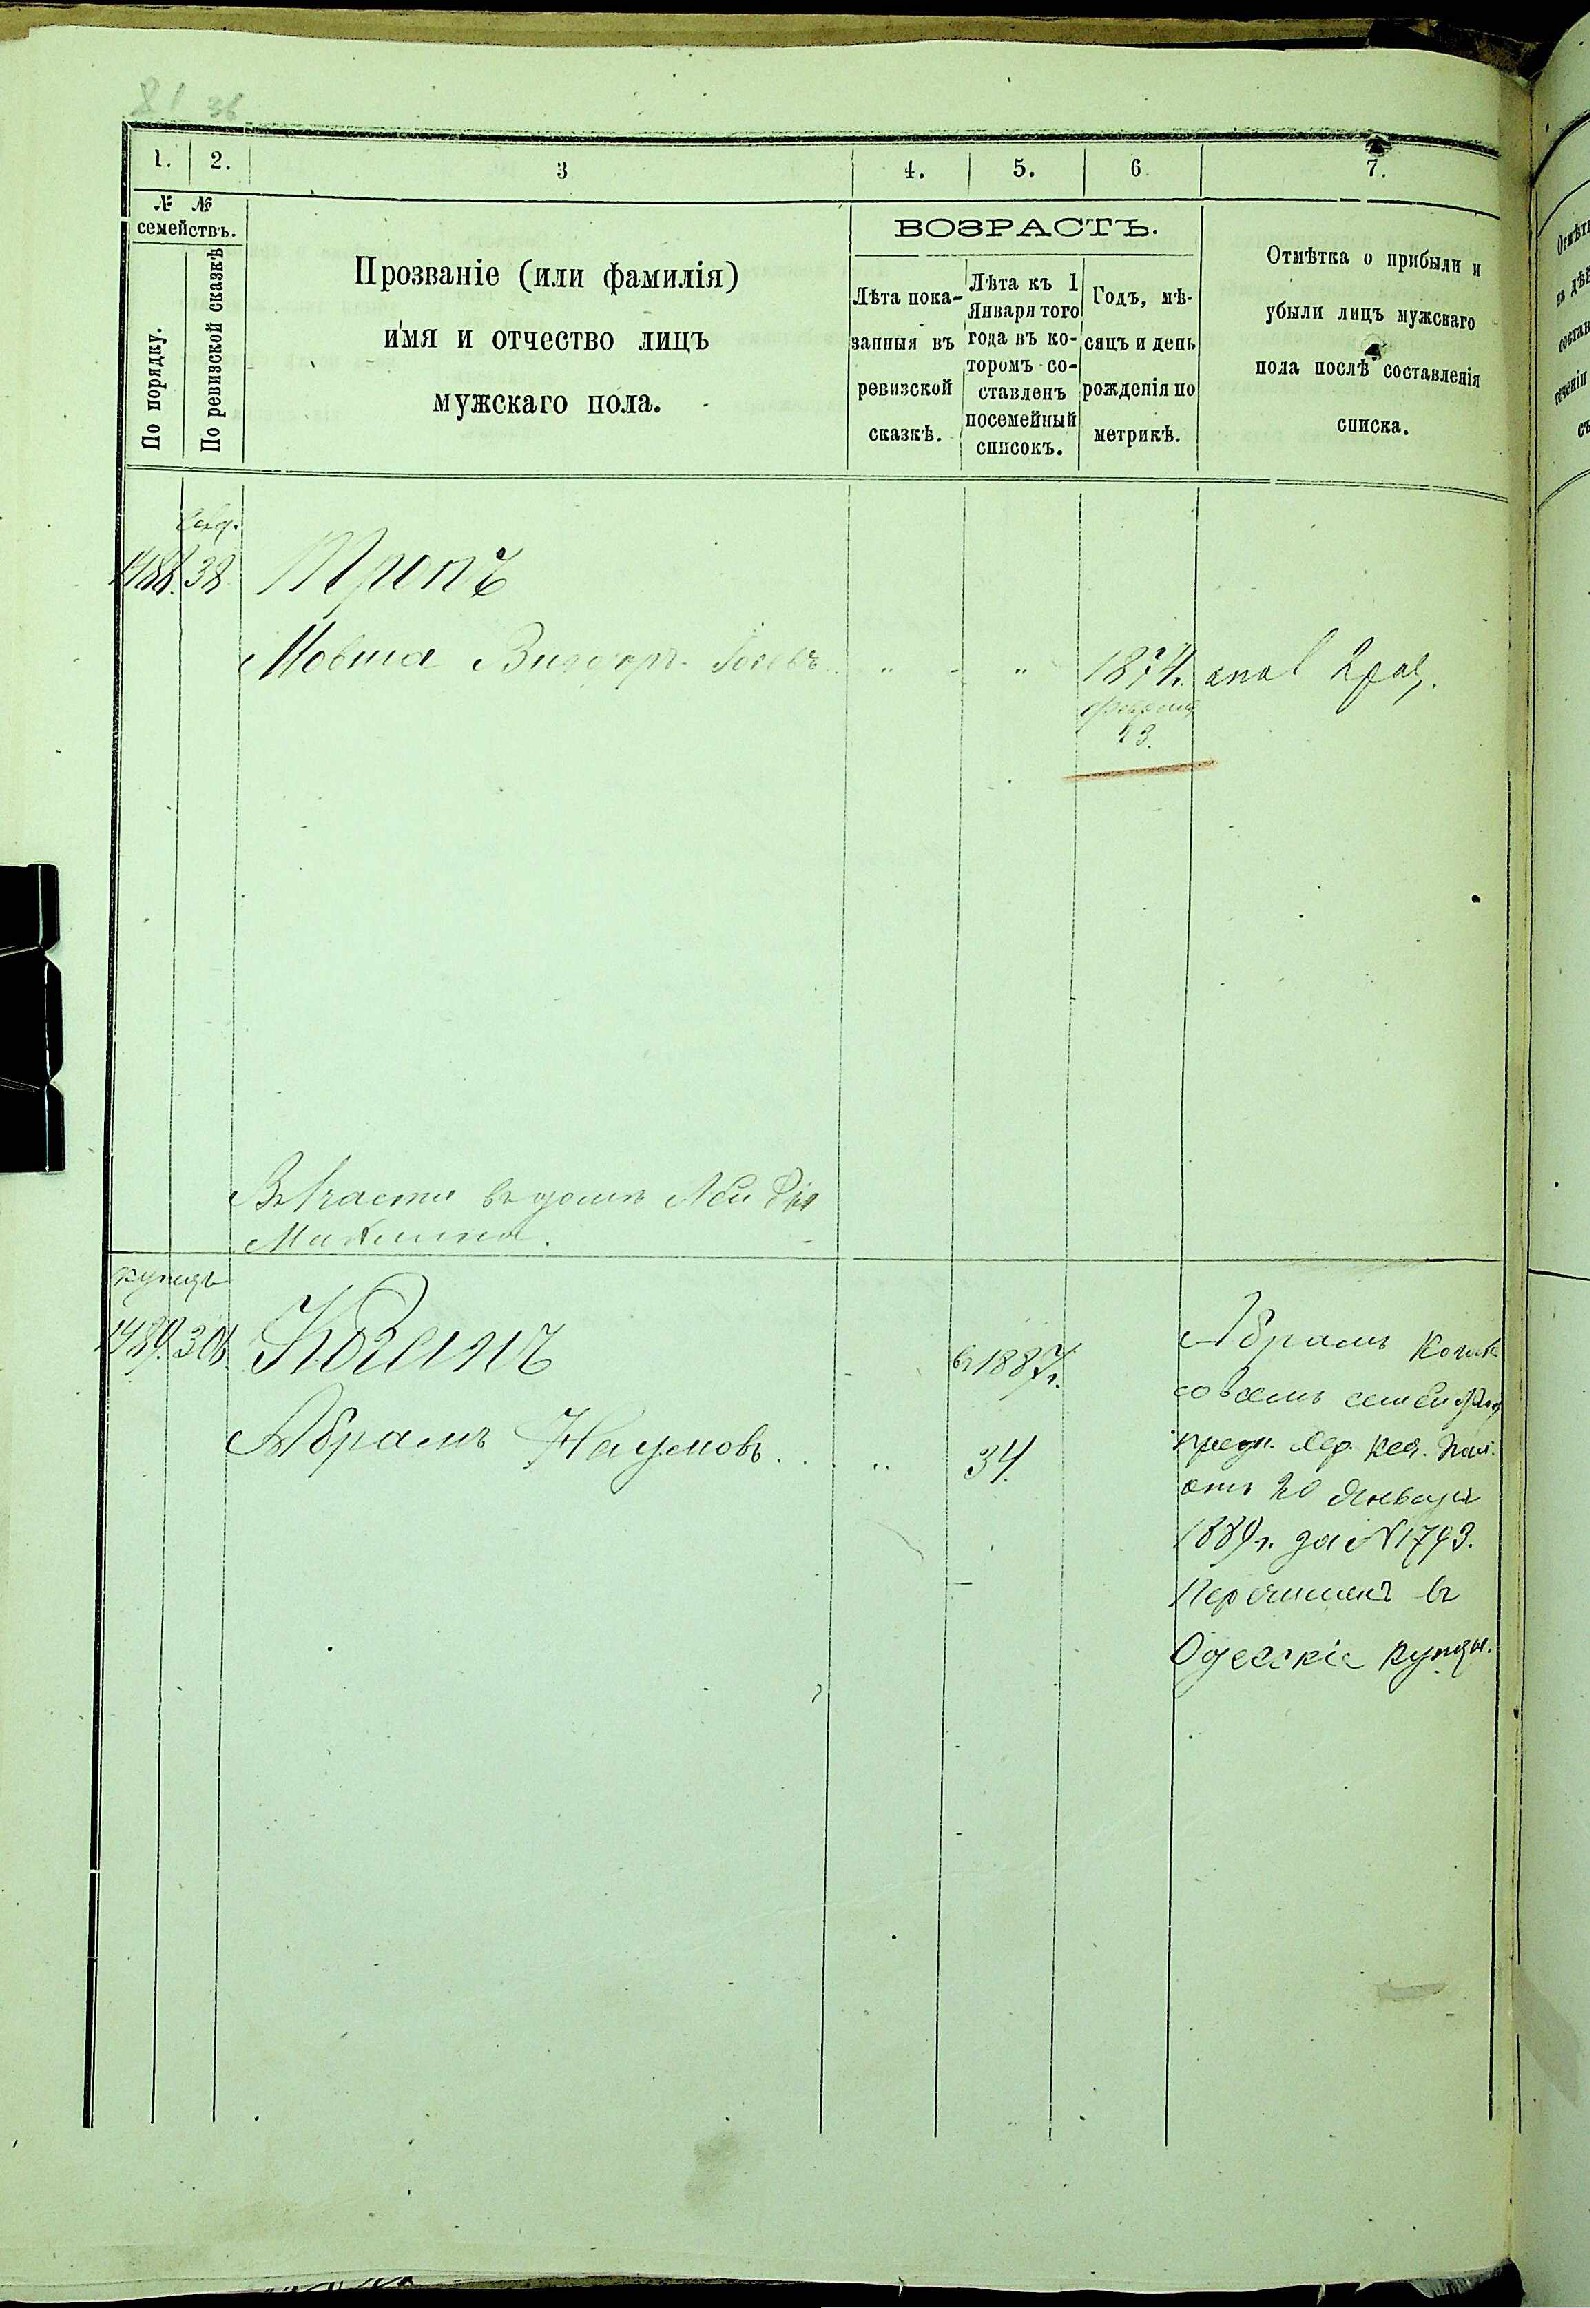 81 36
1. 2. 3 4. 5. 6 7.
№ №
семействъ.
По порядку.
По ревизской сказкѣ
Прозваніе (или фамилія)
имя и отчество лицъ
мужскаго пола.
ВОЗРАСТЪ.
Лѣта пока-
занныя въ
ревизской
сказкѣ.
Лѣта къ 1
Января того
года въ ко-
торомъ со-
ставленъ
посемейный
списокъ.
Годъ, мѣ-
сяцъ и день
рожденія по
метрикѣ.
Отмѣтка о прибыли и
убыли лицъ мужскаго
пола послѣ составленія
списка.
1488. 38.
Мовша 1874.
23.
Въ 1 части въ домѣ
купецъ
1489. 306. Коганъ въ 1887 г.
Абрамъ Наумовъ 34.
Абрамъ Коганъ
со всемъ
предп. Хер. Каз. Пал.
отъ 20 Января
1889 г. за № 1793.
Перечисленъ въ
Одесскіе купцы.